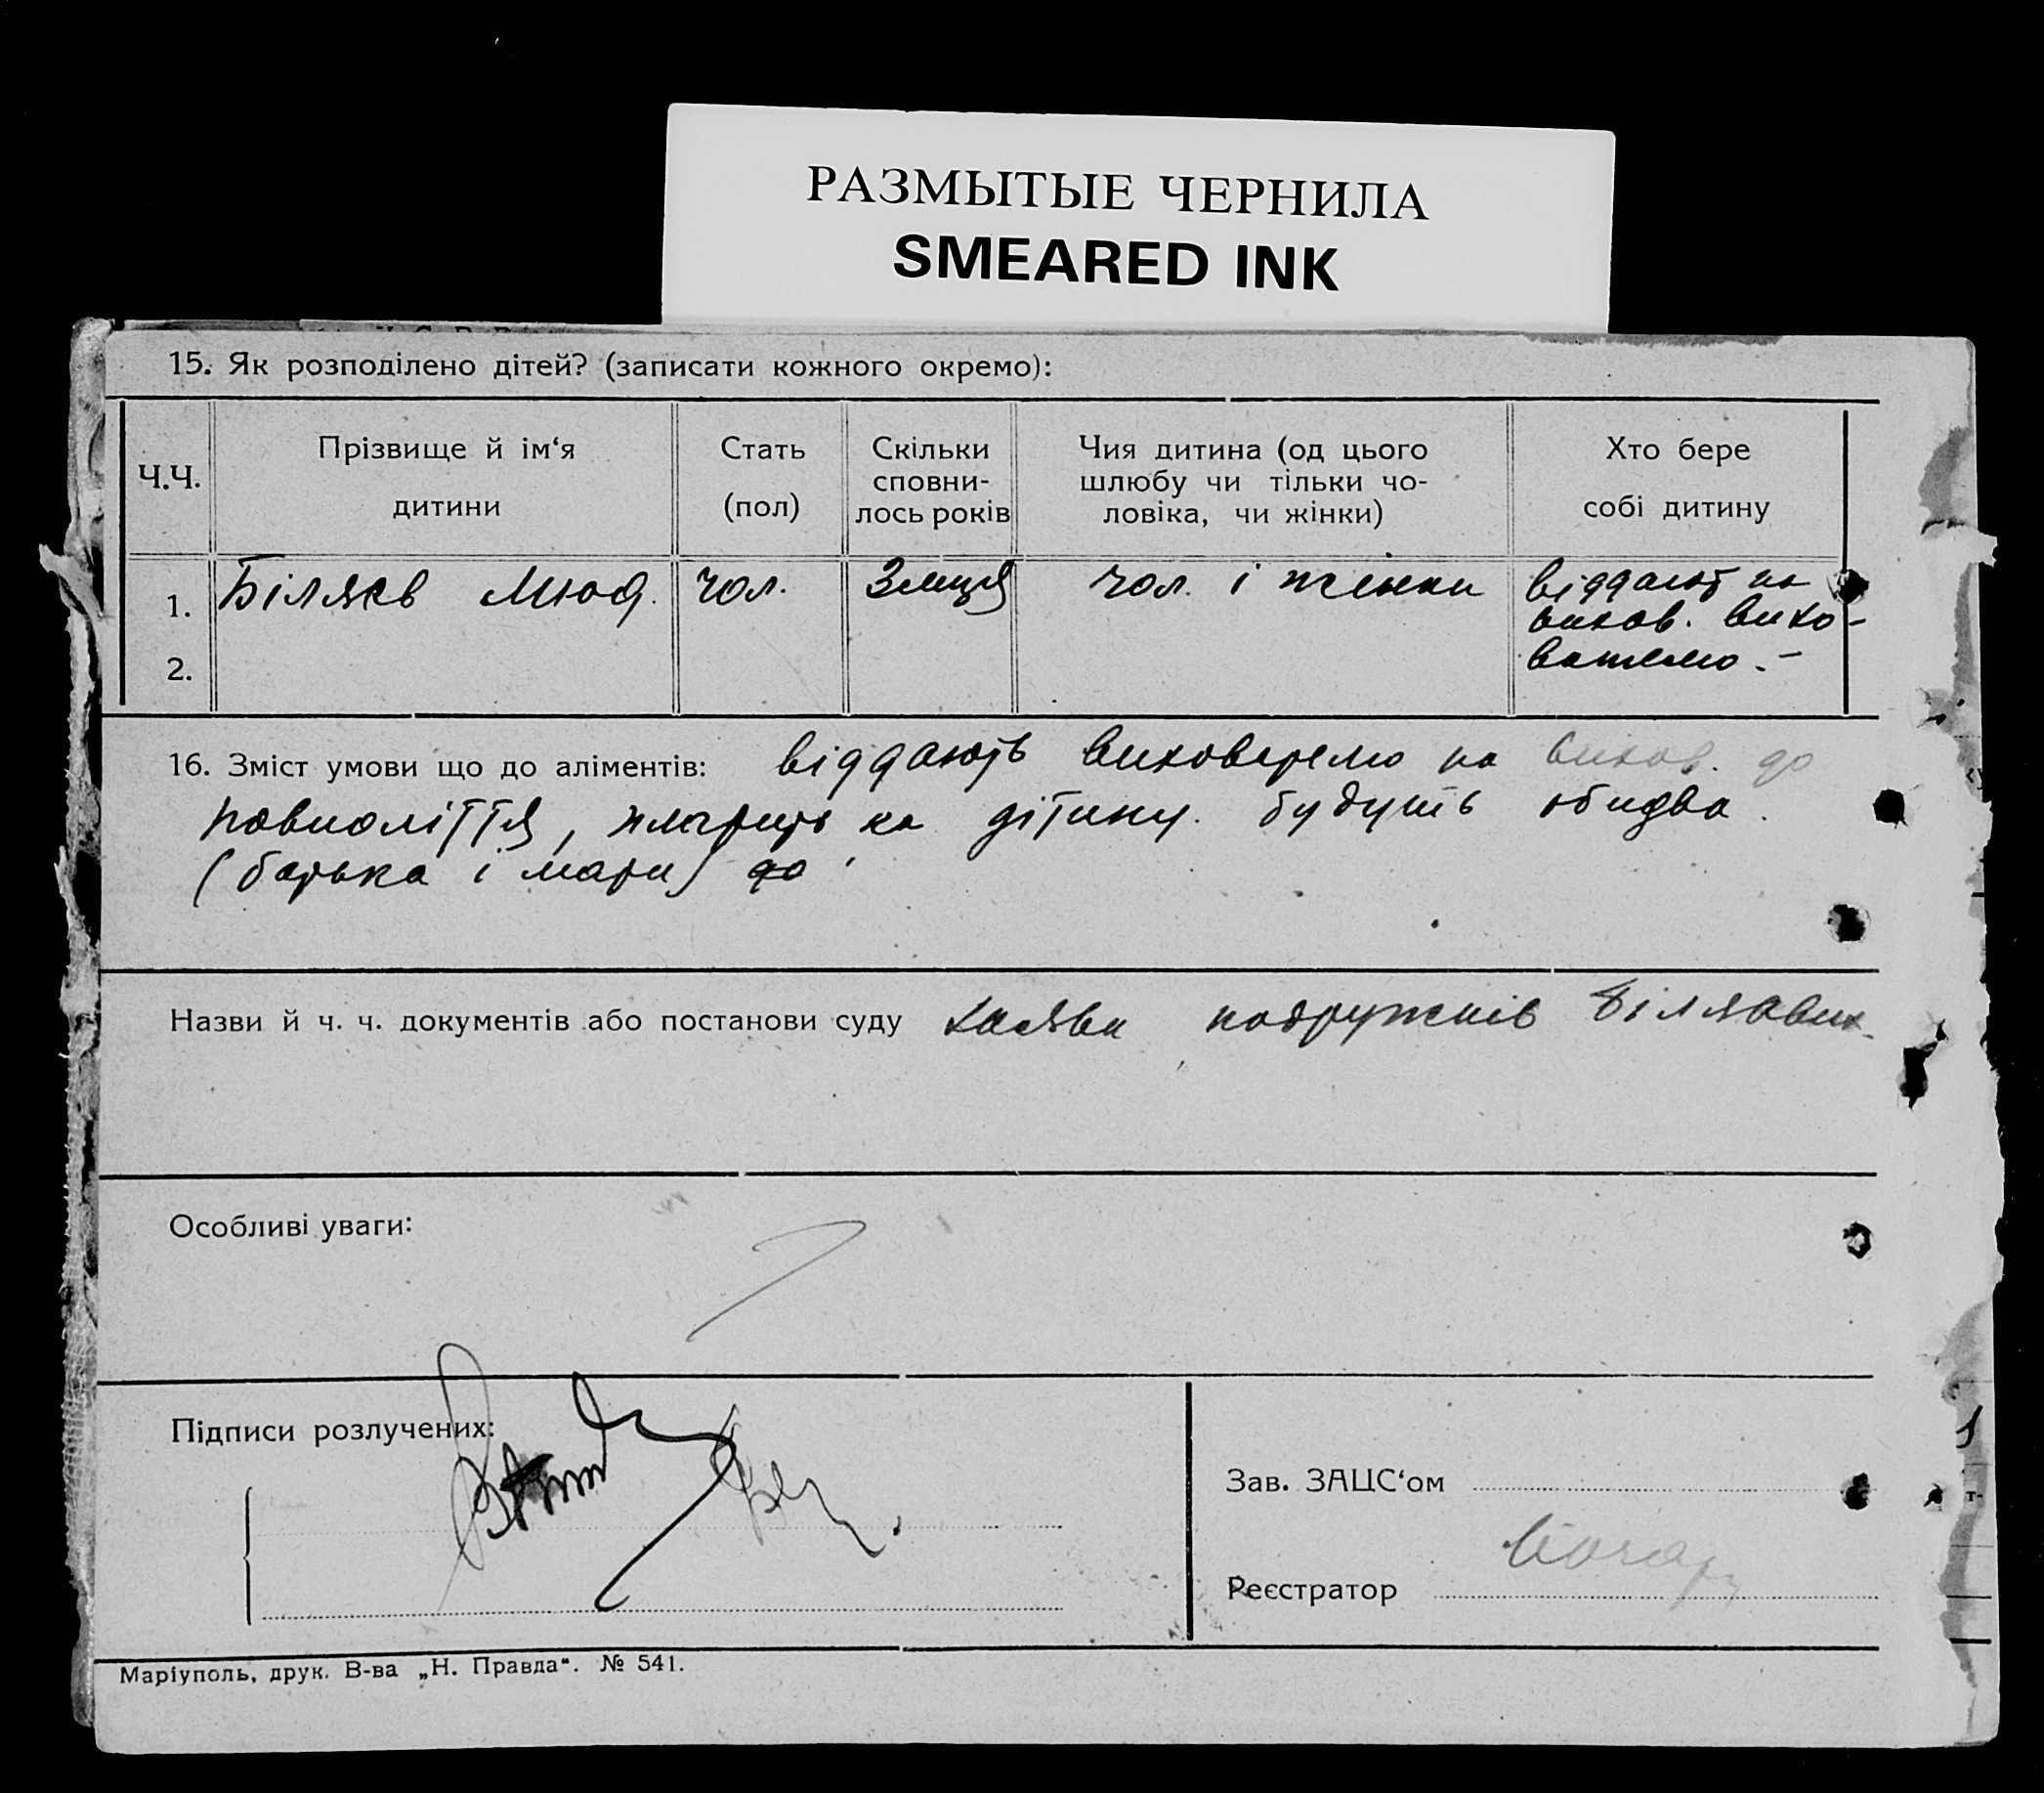 РАЗМЫТЫЕ ЧЕРНИЛА
SMEARED INK
15. Як розподілено дітей? (записати кожного окремо):
Ч.Ч.
Прізвище й ім‘я
дитини
Стать
(пол)
Скільки
сповни-
лось років
Чия дитина (од цього
шлюбу чи тільки чо-
ловіка, чи жінки)
Хто бере
собі дитину
1. Біляєв чол. 3 міця чол. і жінки віддают на
вихов. вихо-
2. вателю.-
16. Зміст умови що до аліментів: віддають на вихов. до
повноліття, платить на дітину. будуть обидва.
(батька і мати) до
Назви й ч. ч. документів або постанови суду заява подружжів
Особливі уваги:
Підписи розлучених:
Зав. ЗАЦС‘ом
Реєстратор
Маріуполь, друк. В-ва „Н. Правда“. № 541.